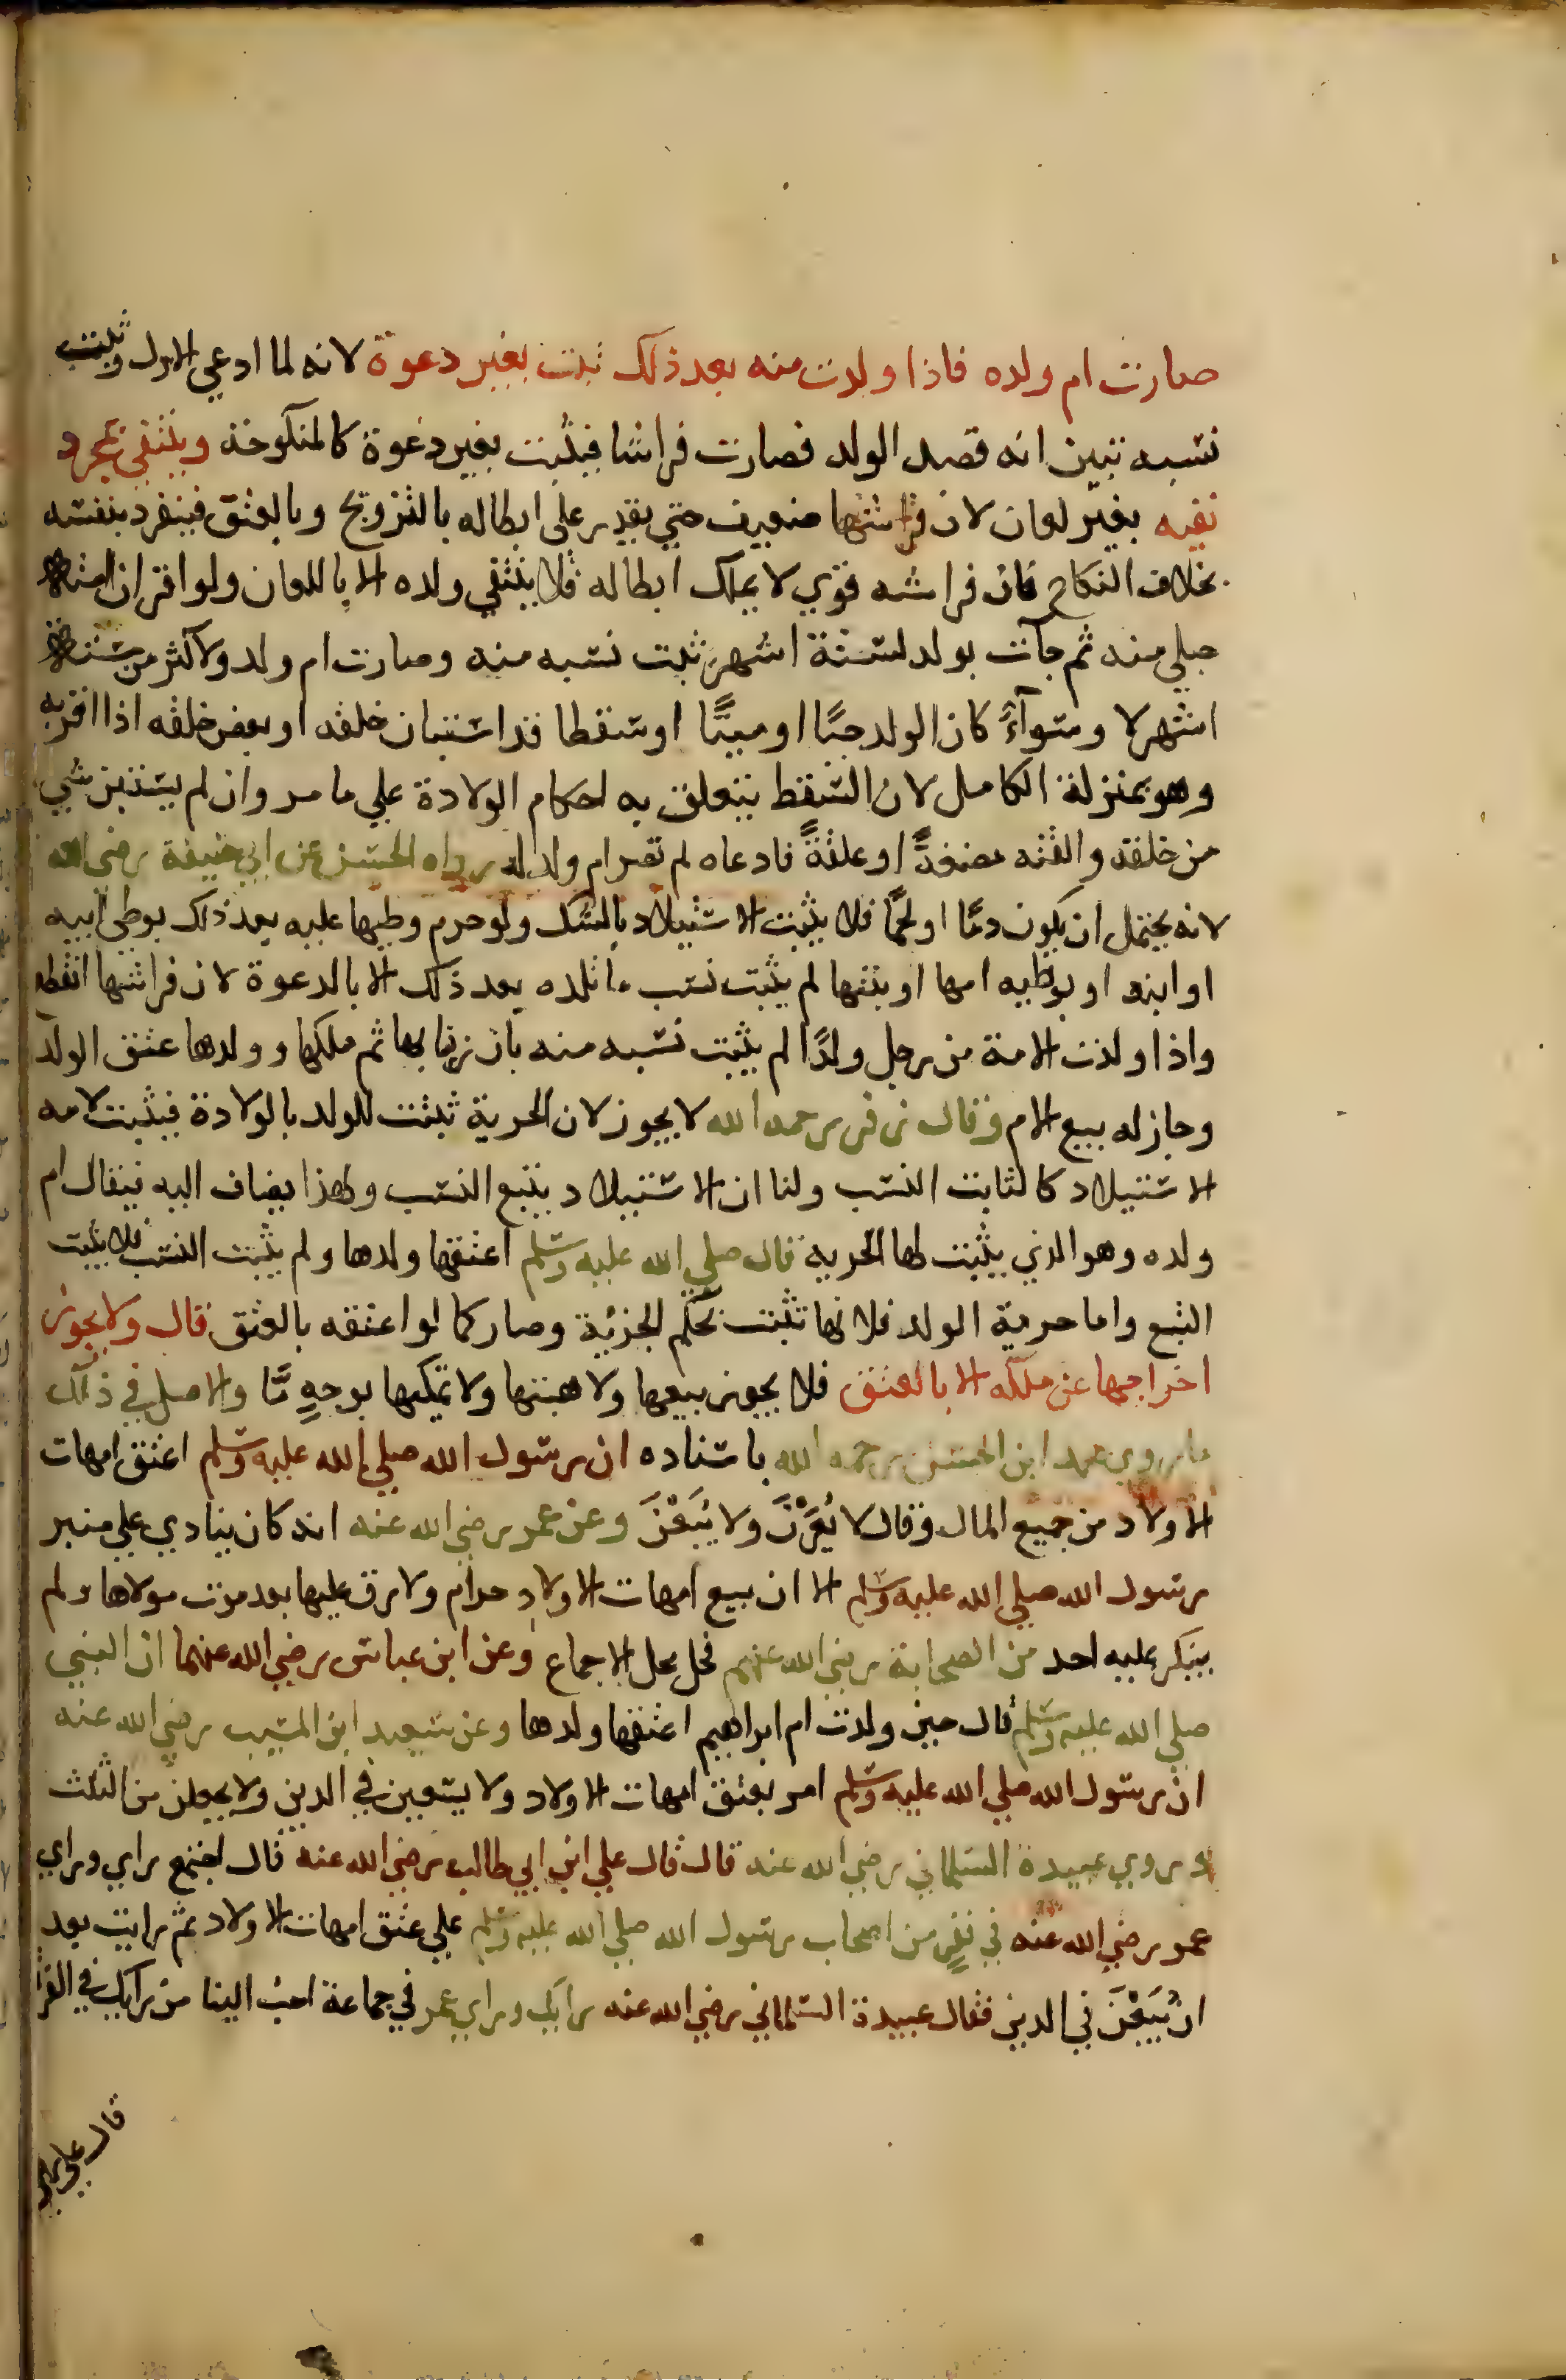 صارت ام ولده فاذا ولدت منه بعد ذلك ثبت بغير دعوة لانه لما ادعي الاول وثبت
نسبه تبين انه قصد الولد فصارت فراشا فيثبت بغير دعوة كالمنكوحة وينتفي بمجرد
نفيه بغير لعان لان فراشها ضعيف حتي يقدر علي ابطاله بالتزويج وبالعتق فينفرد بنفسه
بخلاف النكاح فان فراشه قوي لا يملك ابطاله فلا ينتفي ولده الا باللعان ولو اقر ان امته
حبلي منه ثم جآت بولد لستة اشهر ثبت نسبه منه وصارت ام ولد ولاكثر من ستة
اشهر لا وسوآءً كان الولد حيًا او ميتًا او سقطا قد استبان خلقه او بعض خلقه اذا اقر به
وهو بمنزلة الكامل لان السقط يتعلق به احكام الولادة علي ما مر وان لم يستبن شي
من خلقه والقته مضغةً او علقةً فادعاه لم تصر ام ولد له رواه الحسن عن ابي حنيفة رضي الله
لانه يحتمل ان يكون دمًا او لحمًا فلا يثبت الاستيلاد بالشك ولو حرم وطيها عليه بعد ذلك بوطي ابيه
او ابنه او بوطيه امها او بنتها لم يثبت نسب ما تلده بعد ذلك الا بالدعوة لان فراشها انقطع
واذا ولدت الامة من رجل ولدًا لم يثبت نسبه منه بان زنا بها ثم ملكها وولدها عتق الولد
وجاز له بيع الام وقال زفر رحمه الله لا يجوز لان الحرية ثبتت للولد بالولادة فيثبت لامه
الاستيلاد كالثابت النسب ولنا ان الاستيلاد يتبع النسب ولهذا يضاف اليه فيقال ام
ولده وهو الذي يثبت لها الحرية قال صلي الله عليه وسلم اعتقها ولدها ولم يثبت النسب فلا يثبت
التبع واما حرية الولد فلانها تثبت بحكم الجزئية وصار كما لو اعتقه بالعتق قال ولا يجوز
اخراجها عن ملكه الا بالعتق فلا يجوز بيعها ولا هبتها ولا تمليكها بوجهٍ مَّا والاصل في ذلك
ما روي محمد ابن الحسن رحمه الله باسناده ان رسول الله صلي الله عليه وسلم اعتق امهات
الاولاد من جميع المال وقال لا يُعَرْنَ ولا يُبَعْنَ وعن عمر رضي الله عنه انه كان ينادي علي منبر
رسول الله صلي الله عليه وسلم الا ان بيع امهات الاولاد حرام ولا رق عليها بعد موت مولاها ولم
ينكر عليه احد من الصحابة رضي الله عنهم فحل محل الاجماع وعن ابن عباس رضي الله عنهما ان النبي
صلي الله عليه وسلم قال حين ولدت ام ابراهيم اعتقها ولدها وعن سعيد ابن المسيب رضي الله عنه
ان رسول الله صلي الله عليه وسلم امر بعتق امهات الاولاد ولا يسعين في الدين ولا يجعلن من الثلث
وروي عبيدة السلماني رضي الله عنه قال قال علي ابن ابي طالب رضي الله عنه قال اجتمع راي وراي
عمر رضي الله عنه في نفرٍ من اصحاب رسول الله صلي الله عليه وسلم علي عتق امهات الاولاد ثم رايت بعد
ان يُبَعْنَ في الدين فقال عبيدة السلماني رضي الله عنه رايك وراي عمر في جماعة احبُ الينا من رايك في الفر
قال علي